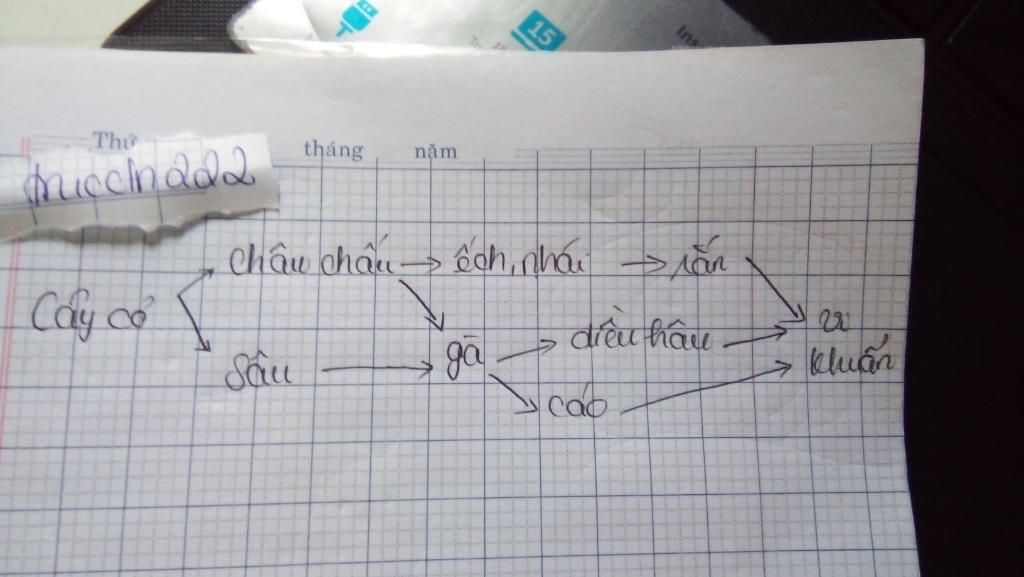 15
Thứ tháng năm
thuccln222
châu chấu → ếch, nhái → rắn
Cây cỏ
vi
sâu → gà → diều hâu → khuẩn
cáo